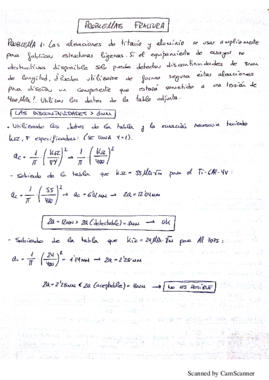 PROBLEMAS FRACTURA
PROBLEMA 1: Las aleaciones de titanio y aluminio se usan ampliamente
para fabricar estructuras ligeras. Si el equipamiento de ensayos no
destructivos disponible solo puede detectar discontinuidades de 3mm
de longitud, ¿Pueden utilizarse de forma segura estas aleaciones
para diseñar un componente que estará sometido a una tensión de
400MPa? Utilizar los datos de la tabla adjunta.
LAS DISCONTINUIDADES >
- Utilizando los datos de la tabla y la ecuación necesaria teniendo
KIC, σ especificadas: (SE USA Y=1).
ac = 1/π (KIC/σY)² → 1/π (KIC/400)²
- Sabiendo de la tabla que KIC = 55 MPa·√m para el Ti-6Al-4V:
ac = 1/π (55/400)² → ac = 6'01mm → 2a = 12'04mm
2a = 12mm > 2a (detectable) = → OK
- Sabiendo de la tabla que KIC = 24 MPa·√m para Al 7075:
ac = 1/π (24/400)² = 1'14mm → 2a = 2'28mm
2a = 2'28mm < 2a (aceptable) = → NO ES POSIBLE
Scanned by CamScanner